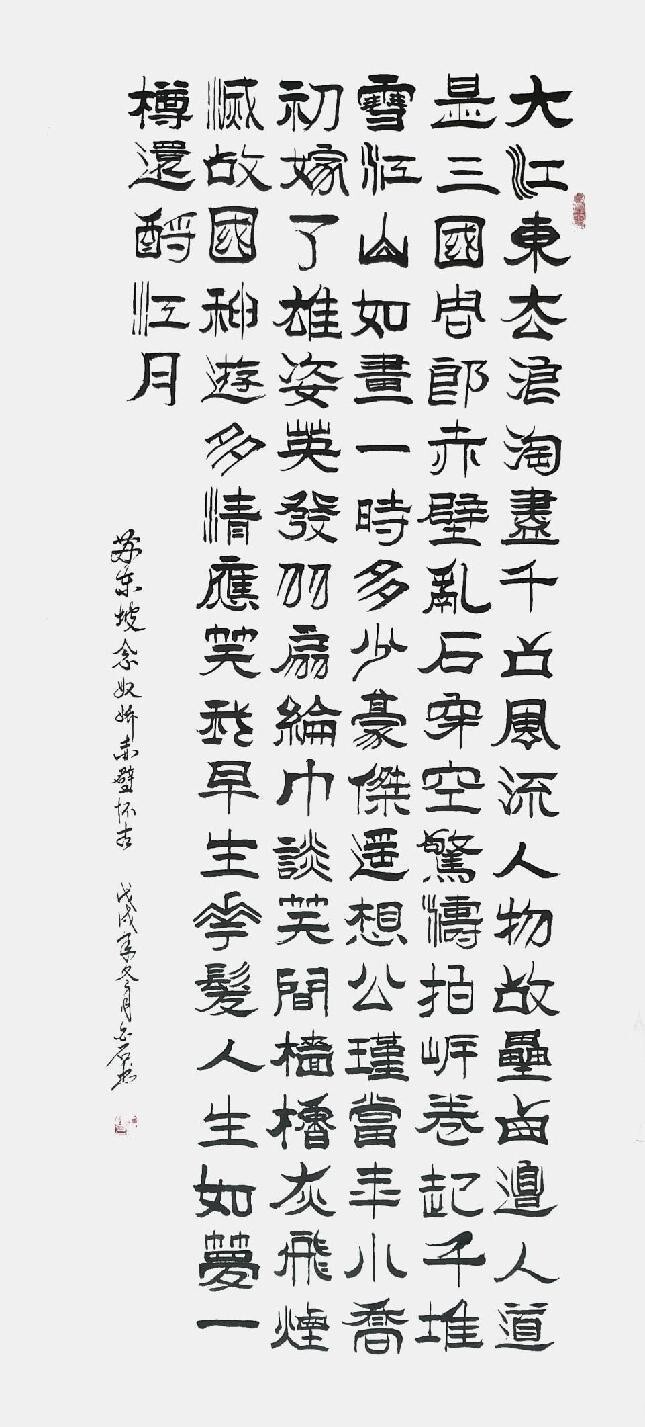 大江東去浪淘盡千古風流人物故壘鹵邉人道
是三國周郎赤壁亂石穿空驚濤拍岸卷起千堆
雪江山如畫一時多少豪傑遥想公瑾當年小喬
初嫁了雄姿英發羽扇綸巾談笑間檣櫓灰飛煙
滅故國神遊多情應笑我早生華髮人生如夢一
樽還酹江月
苏东坡念奴娇赤壁怀古 戊戌年冬月